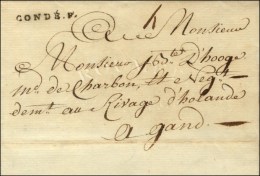 CONDÉ. F.
A Monsieur
Monsieur J. Bte D'hooge
md de Charbon, et Negt
demt au Rivage d'holande
a gand